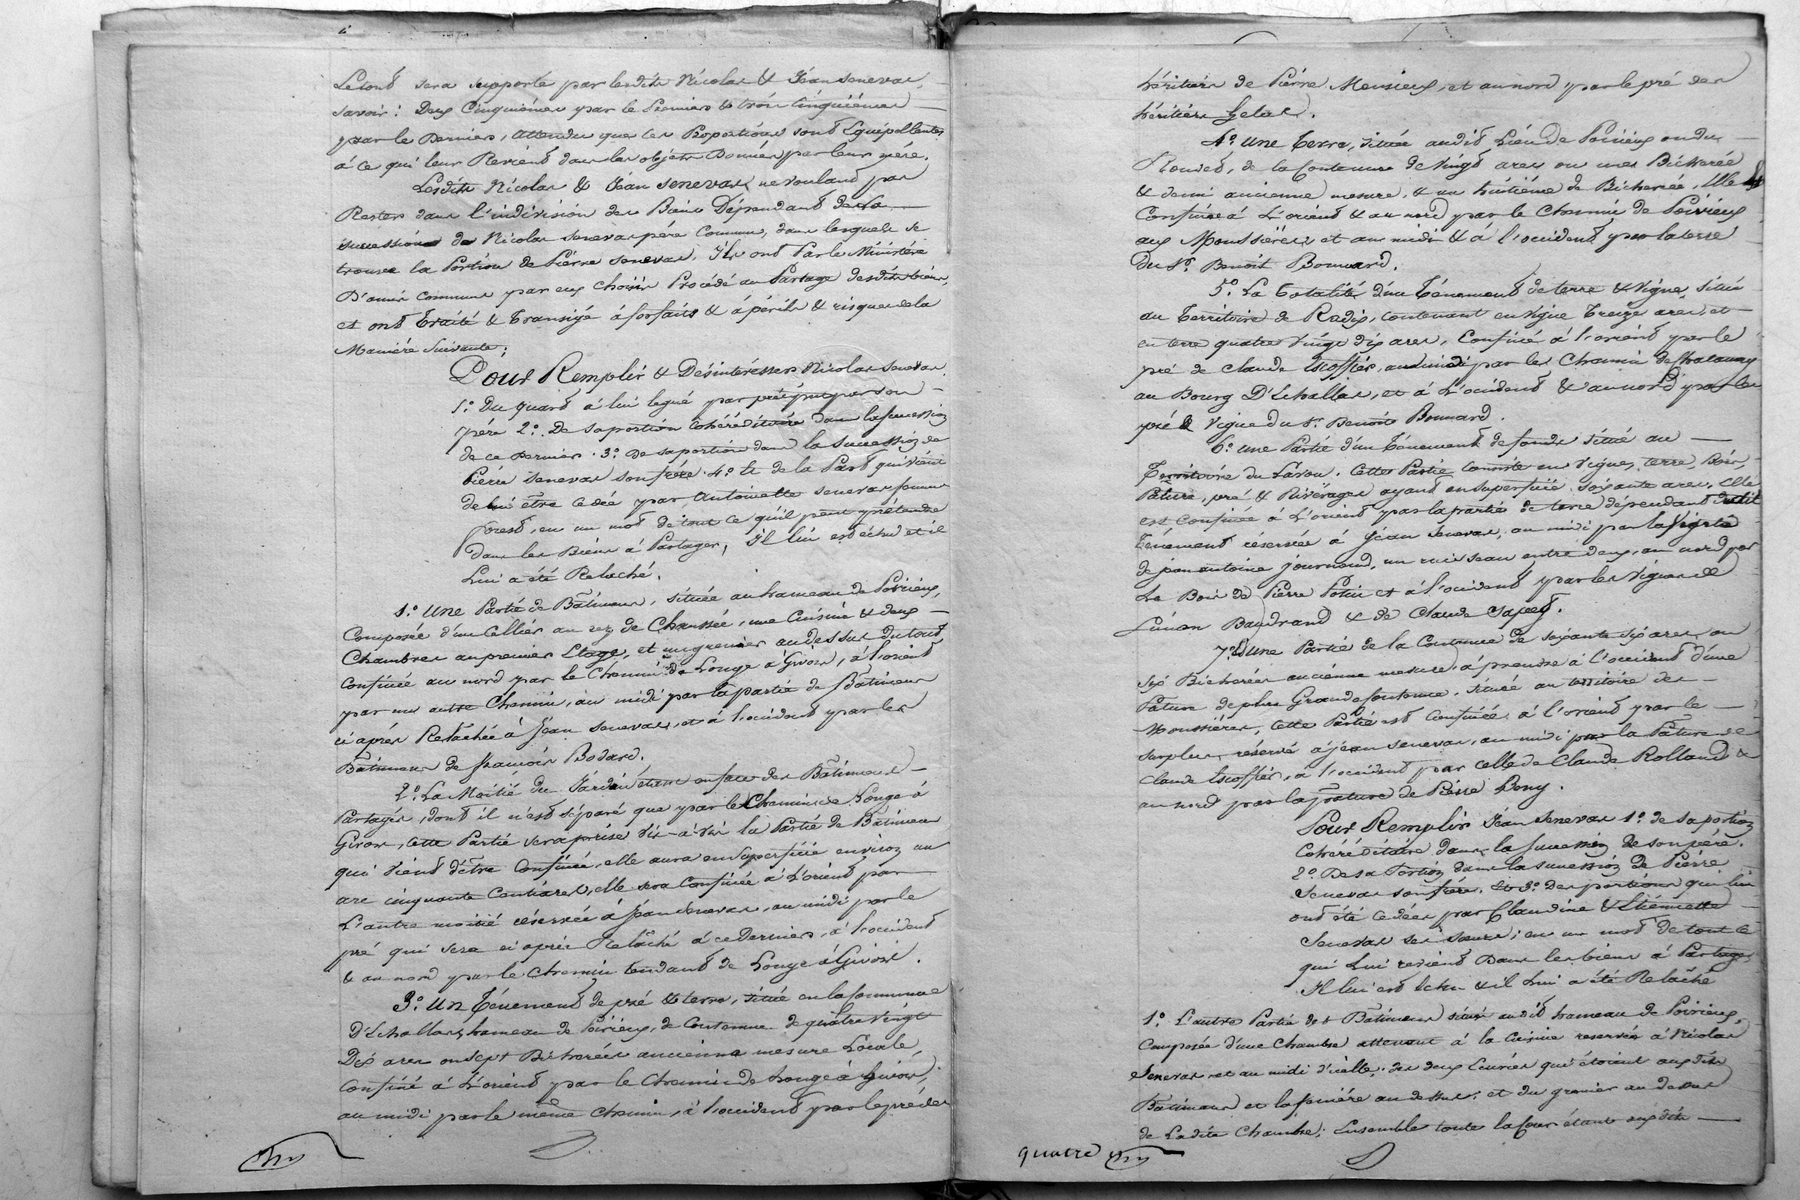 Le tout sera supporté par lesdits Nicolas & Jean Senevas
savoir: Deux Cinquièmes par le Premier & trois Cinquièmes
par le Dernier, attendu que ces Proportions sont Equipollentes
à ce qui leur Revient dans les objets Donnés par leur mère.
Lesdits Nicolas & Jean Senevas ne voulant pas
Rester dans l'indivision des Biens Dépendant de la
succession de Nicolas Senevas père Commun, dans lesquels se
trouve la Portion de Pierre Senevas, Ils ont Par le Ministère
D'amis communs par eux choisis Procédé au Partage desdits biens,
et ont Traité & Transigé à forfaits & à périls & risques de la
Manière Suivante;
Pour Remplir & Désintéresser Nicolas Senevas
1.° Du quart à lui légué par préciput par son
père 2.° De sa portion Cohéréditaire dans la succession
de ce Dernier. 3.° De sa portion dans la succession de
Pierre Senevas son frère. 4.° Et de la Part qui vient
de lui être Cedée par Antoinette Senevas femme
Forest, en un mot de tout ce qu'il peut prétendre
dans les Biens à Partager, Il lui est échu et il
Lui a été Relaché.
1.° Une Partie de Bâtiment, située au hameau de Poirieux,
Composée d'un Cellier au rez de Chaussée, une Cuisine & deux
Chambres au premier Etage, et un grenier au dessus du tout
Confinée au nord par le Chemin de Longe à Givors, à l'orient
par un autre Chemin, au midi par la partie de Bâtiment
ci après Relachée à Jean Senevas, et à l'occident par les
Bâtiments de François Bodard.
2.° La Moitié du Jardin étant en face des Bâtiments
Partagés, dont il n'est séparé que par le Chemin de Longe à
Givors, Cette Partie sera prise vis-à-vis la Partie de Bâtiment
qui vient d'être Confinée, elle aura en Superficie environ un
are cinquante Centiares, elle sera Confinée à l'orient par
L'autre moitié réservée à Jean Senevas, au midi par le
pré qui sera ci après Relâché à ce Dernier, à l'occident
& au nord par le Chemin tendant de Longe à Givors.
3.° Un Ténement de pré & terre, situé en la Commune
D'Echallas, hameau de Poirieux, de Contenue de quatre Vingt
Dix ares ou Sept Bicherées ancienne mesure Locale,
Confiné à L'orient par le Chemin de Longe à Givors,
au midi par le même Chemin, à l'occident par le pré des
héritiers de Pierre Mousieux, et au nord par le pré des
héritiers Gelas.
4.° Une Terre, située audit Lieu de Poirieux ou du
de la Contenue de Vingt ares ou une Bicherée
& demi ancienne mesure, & un huitième de Bicherée, Elle
Confinée à L'orient & au nord par le Chemin de Poirieux
aux Moussières, et au midi & à l'occident par la terre
du Sr. Benoit Bonnard.
5.° La Totalité d'un Ténement de terre & Vigne, situé
au Territoire de Radix, Contenant en Vigne Treize ares et
en terre quatre Vingt dix ares, Confiné à l'orient par le
pré de Claude Escoffier, au midi par les Chemin de
au Bourg D'Echallas, et à l'occident & au nord par les
pré & Vigne du Sr. Benoit Bonnard.
6.° Une Partie d'un Ténement de fonds situé au
Territoire du Lavou. Cette Partie Consiste en Vigne, terre, Bois,
Pature, pré & Rivérages ayant en superficie soixante ares, elle
est Confinée à L'orient par la partie de terre dépendant dudit
Ténement réservée à Jean Senevas, au midi par la Vigne
de Jean antoine Journoud, un ruisseau entre deux, au nord par
Le Bois de Pierre Potin et à l'occident par les Vignes de
Simon Baudrand & de Claude Capeet.
7.° Une Partie de la Contenue de soixante six ares, ou
six Bicherées ancienne mesure, à prendre à l'occident d'une
Pature de plus Grande Contenue, située au territoire des
Moussières, Cette Partie est Confinée à l'orient par le
surplus réservé à Jean Senevas, au midi par la Pâture de
Claude Escoffier, à l'occident par celle de Claude Rolland &
au nord par la pature de Pierre Bony.
Pour Remplir Jean Senevas 1.° de sa portion
Cohéréditaire dans la succession de son père.
2.° De sa Portion dans la succession de Pierre
Senevas son frère. Et 3.° Des portions qui lui
ont été cedées par Claudine & Etiennette
Senevas ses sœurs; en un mot de tout ce
qui Lui revient Dans les biens à Partager
Il lui est échu & il Lui a été Relâché
1.° L'autre Partie des Bâtiments situés audit hameau de Poirieux,
Composée d'une Chambre attenant à la Cuisine réservée à Nicolas
Senevas et au midi d'icelle, des deux Ecuries qui étoient auxdits
Batiments et la fenière au dessus, et du grenier au dessus
de Ladite Chambre; Ensemble toute la Cour étant auxdits
quatre